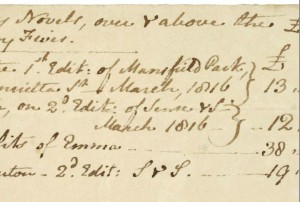 Novels, over & above the £
Fives.
1st Edit: of Mansfield Park, £
Henrietta St March, 1816 } 13
on 2d Edit: of Sense & S. }
March 1816 } 12
of Emma 38
2d Edit: S & S. 19